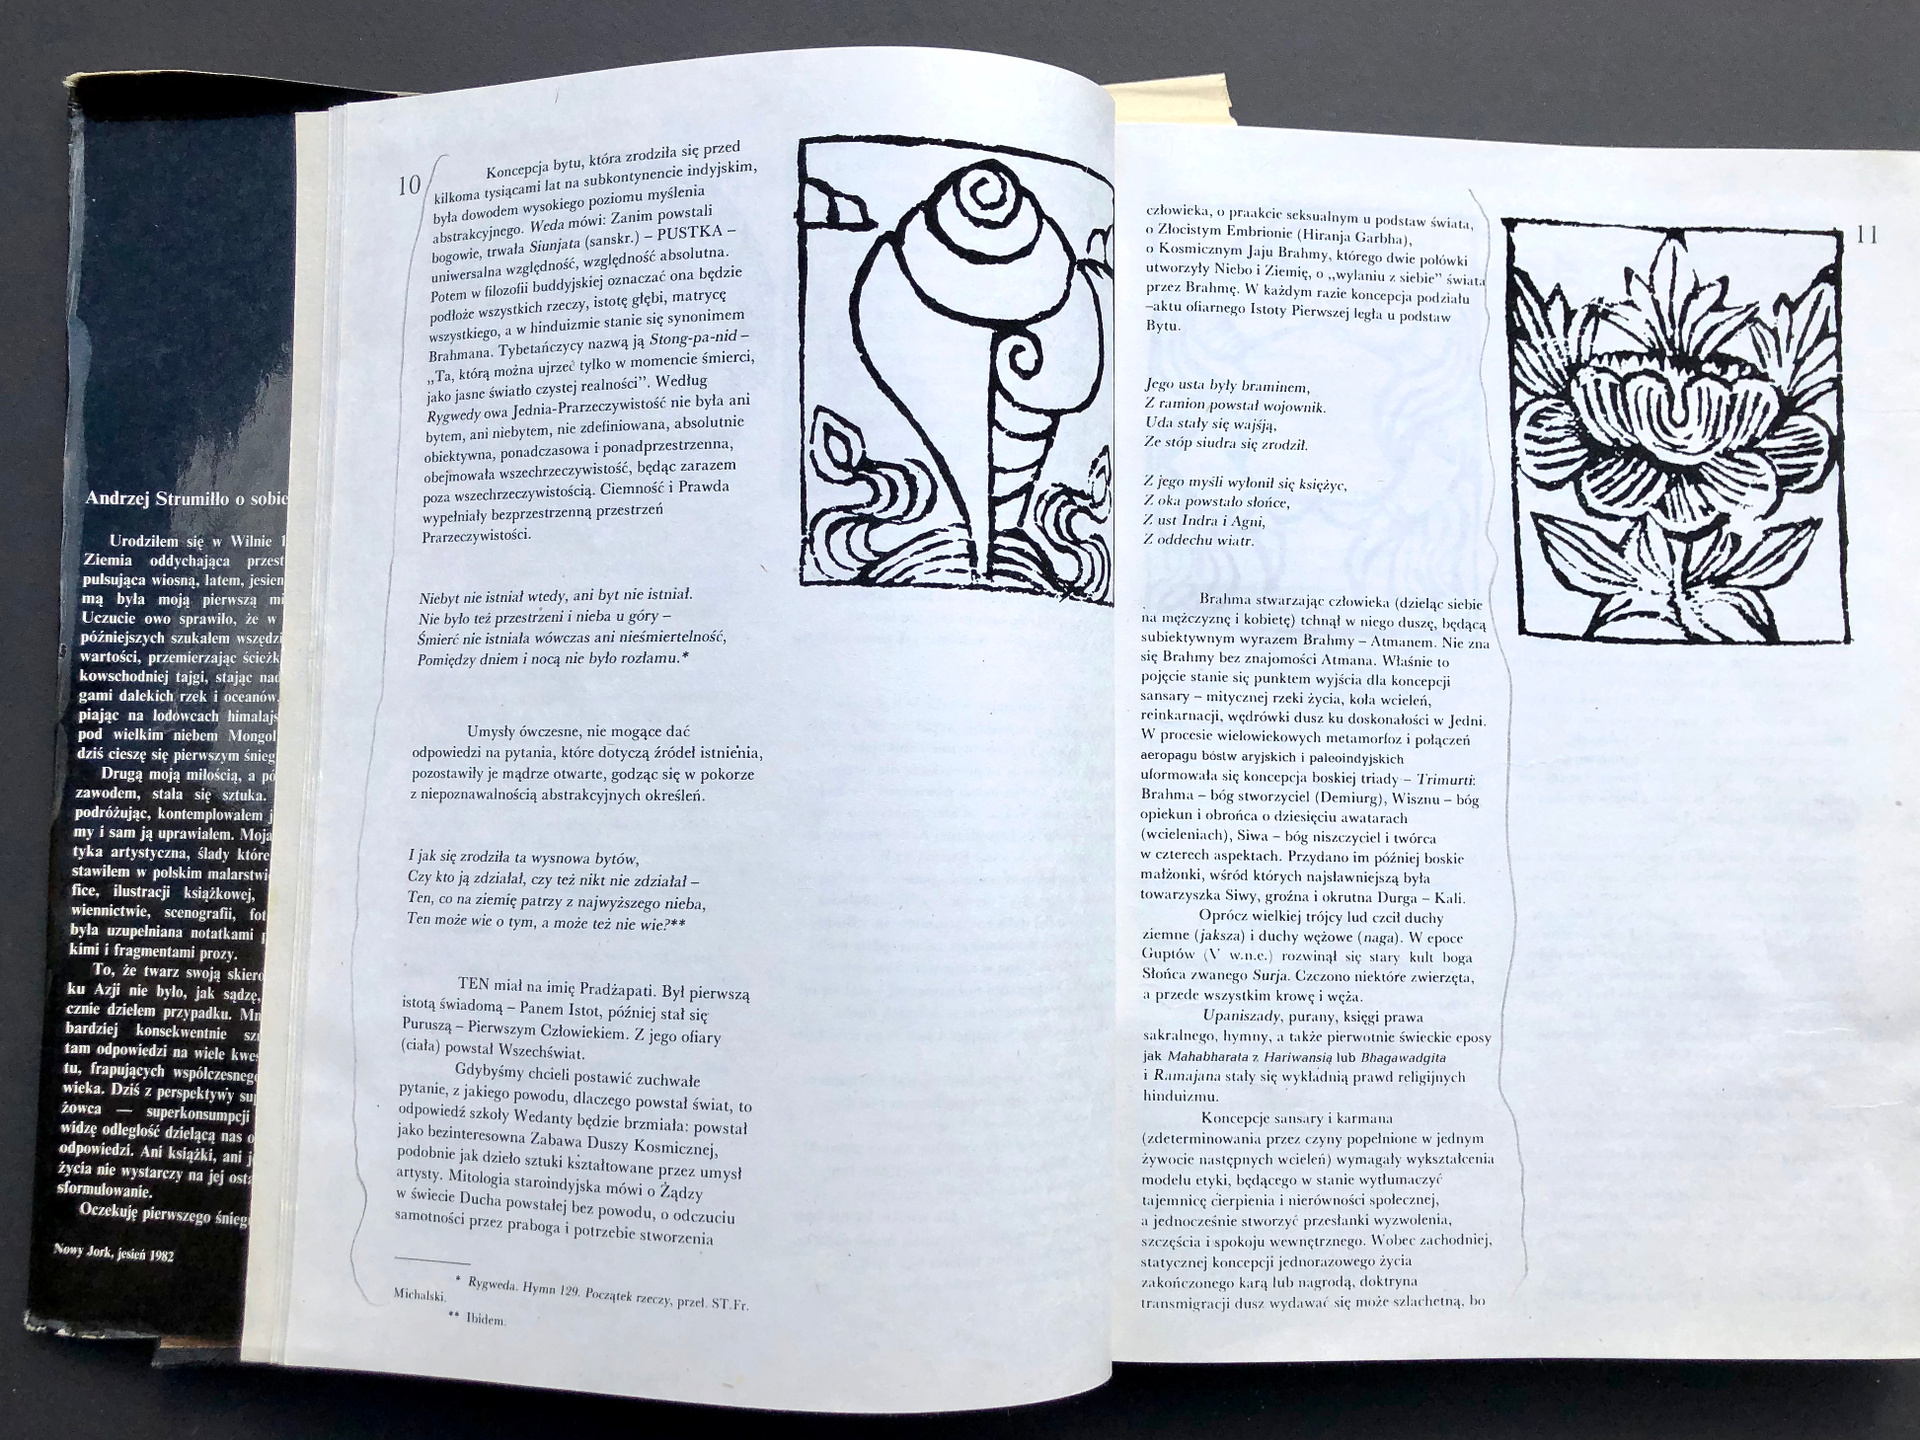 Andrzej Strumiłło o sobie
Urodziłem się w Wilnie 1
Ziemia oddychająca przest
pulsująca wiosną, latem, jesien
mą była moją pierwszą mi
Uczucie owo sprawiło, że w
późniejszych szukałem wszędzi
wartości, przemierzając ścieżk
kowschodniej tajgi, stając nad
gami dalekich rzek i oceanów.
piając na lodowcach himalajs
pod wielkim niebem Mongol
dziś cieszę się pierwszym śnieg
Drugą moją miłością, a pó
zawodem, stała się sztuka.
podróżując, kontemplowałem j
my i sam ją uprawiałem. Moja
tyka artystyczna, ślady które
stawiłem w polskim malarstwi
fice, ilustracji książkowej,
wiennictwie, scenografii, fot
była uzupełniana notatkami p
kimi i fragmentami prozy.
To, że twarz swoją skiero
ku Azji nie było, jak sądzę,
cznie dziełem przypadku. Mn
bardziej konsekwentnie szu
tam odpowiedzi na wiele kwes
tu, frapujących współczesneg
wieka. Dziś z perspektywy sup
żowca — superkonsumpcji
widzę odległość dzielącą nas o
odpowiedzi. Ani książki, ani j
życia nie wystarczy na jej osta
sformułowanie.
Oczekuję pierwszego śnieg
Nowy Jork, jesień 1982
10
Koncepcja bytu, która zrodziła się przed
kilkoma tysiącami lat na subkontynencie indyjskim,
była dowodem wysokiego poziomu myślenia
abstrakcyjnego. Weda mówi: Zanim powstali
bogowie, trwała Siunjata (sanskr.) – PUSTKA –
uniwersalna względność, względność absolutna.
Potem w filozofii buddyjskiej oznaczać ona będzie
podłoże wszystkich rzeczy, istotę głębi, matrycę
wszystkiego, a w hinduizmie stanie się synonimem
Brahmana. Tybetańczycy nazwą ją Stong-pa-nid –
„Ta, którą można ujrzeć tylko w momencie śmierci,
jako jasne światło czystej realności”. Według
Rygwedy owa Jednia-Prarzeczywistość nie była ani
bytem, ani niebytem, nie zdefiniowana, absolutnie
obiektywna, ponadczasowa i ponadprzestrzenna,
obejmowała wszechrzeczywistość, będąc zarazem
poza wszechrzeczywistością. Ciemność i Prawda
wypełniały bezprzestrzenną przestrzeń
Prarzeczywistości.
Niebyt nie istniał wtedy, ani byt nie istniał.
Nie było też przestrzeni i nieba u góry –
Śmierć nie istniała wówczas ani nieśmiertelność,
Pomiędzy dniem i nocą nie było rozłamu.*
Umysły ówczesne, nie mogące dać
odpowiedzi na pytania, które dotyczą źródeł istnienia,
pozostawiły je mądrze otwarte, godząc się w pokorze
z niepoznawalnością abstrakcyjnych określeń.
I jak się zrodziła ta wysnowa bytów,
Czy kto ją zdziałał, czy też nikt nie zdziałał –
Ten, co na ziemię patrzy z najwyższego nieba,
Ten może wie o tym, a może też nie wie?**
TEN miał na imię Pradżapati. Był pierwszą
istotą świadomą – Panem Istot, później stał się
Puruszą – Pierwszym Człowiekiem. Z jego ofiary
(ciała) powstał Wszechświat.
Gdybyśmy chcieli postawić zuchwałe
pytanie, z jakiego powodu, dlaczego powstał świat, to
odpowiedź szkoły Wedanty będzie brzmiała: powstał
jako bezinteresowna Zabawa Duszy Kosmicznej,
podobnie jak dzieło sztuki kształtowane przez umysł
artysty. Mitologia staroindyjska mówi o Żądzy
w świecie Ducha powstałej bez powodu, o odczuciu
samotności przez praboga i potrzebie stworzenia
* Rygweda. Hymn 129. Początek rzeczy, przeł. ST.Fr.
Michalski.
** Ibidem.
11
człowieka, o praakcie seksualnym u podstaw świata,
o Złocistym Embrionie (Hiranja Garbha),
o Kosmicznym Jaju Brahmy, którego dwie połówki
utworzyły Niebo i Ziemię, o „wyłaniu z siebie” świata
przez Brahmę. W każdym razie koncepcja podziału
–aktu ofiarnego Istoty Pierwszej legła u podstaw
Bytu.
Jego usta były braminem,
Z ramion powstał wojownik.
Uda stały się wajśją,
Ze stóp siudra się zrodził.
Z jego myśli wyłonił się księżyc,
Z oka powstało słońce,
Z ust Indra i Agni,
Z oddechu wiatr.
Brahma stwarzając człowieka (dzieląc siebie
na mężczyznę i kobietę) tchnął w niego duszę, będącą
subiektywnym wyrazem Brahmy – Atmanem. Nie zna
się Brahmy bez znajomości Atmana. Właśnie to
pojęcie stanie się punktem wyjścia dla koncepcji
sansary – mitycznej rzeki życia, koła wcieleń,
reinkarnacji, wędrówki dusz ku doskonałości w Jedni.
W procesie wielowiekowych metamorfoz i połączeń
aeropagu bóstw aryjskich i paleoindyjskich
uformowała się koncepcja boskiej triady – Trimurti:
Brahma – bóg stworzyciel (Demiurg), Wisznu – bóg
opiekun i obrońca o dziesięciu awatarach
(wcieleniach), Siwa – bóg niszczyciel i twórca
w czterech aspektach. Przydano im później boskie
małżonki, wśród których najsławniejszą była
towarzyszka Siwy, groźna i okrutna Durga – Kali.
Oprócz wielkiej trójcy lud czcił duchy
ziemne (jaksza) i duchy wężowe (naga). W epoce
Guptów (V w.n.e.) rozwinął się stary kult boga
Słońca zwanego Surja. Czczono niektóre zwierzęta,
a przede wszystkim krowę i węża.
Upaniszady, purany, księgi prawa
sakralnego, hymny, a także pierwotnie świeckie eposy
jak Mahabharata z Hariwansią lub Bhagawadgita
i Ramajana stały się wykładnią prawd religijnych
hinduizmu.
Koncepcje sansary i karmana
(zdeterminowania przez czyny popełnione w jednym
żywocie następnych wcieleń) wymagały wykształcenia
modelu etyki, będącego w stanie wytłumaczyć
tajemnicę cierpienia i nierówności społecznej,
a jednocześnie stworzyć przesłanki wyzwolenia,
szczęścia i spokoju wewnętrznego. Wobec zachodniej,
statycznej koncepcji jednorazowego życia
zakończonego karą lub nagrodą, doktryna
transmigracji dusz wydawać się może szlachetną, bo